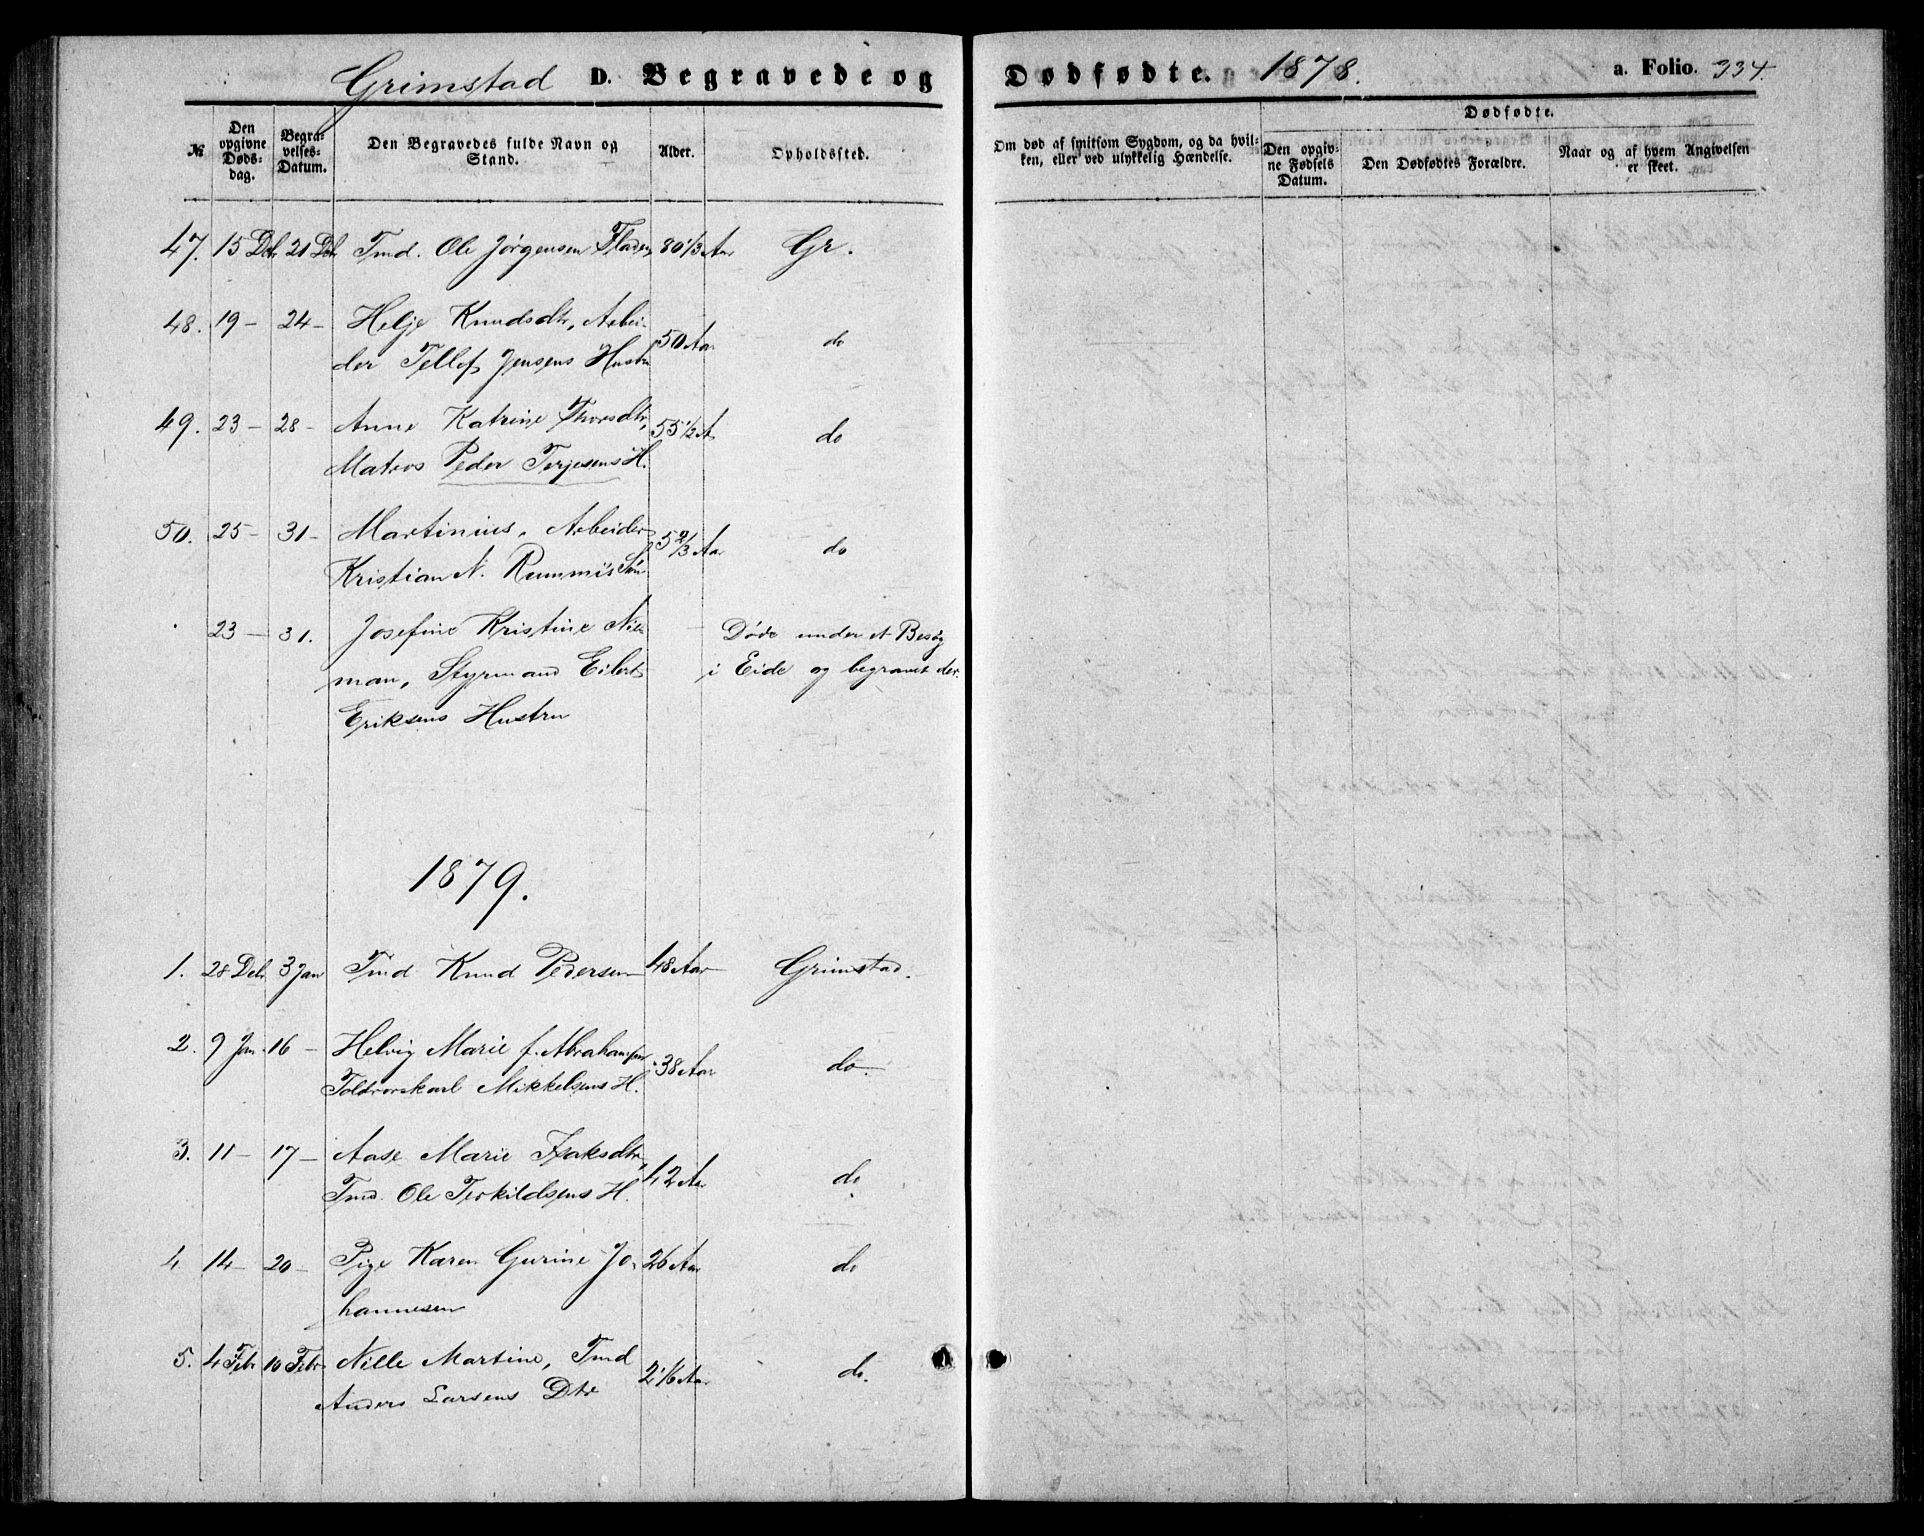 Grimstad D. Begravede og Dødfødte. 1878. a. Folio. 334.
№ Den opgivne Dødsdag. Begravelses-Datum. Den Begravedes fulde Navn og Stand. Alder. Opholdssted. Om død af smitsom Sygdom, og da hvilken, eller ved ulykkelig Hændelse. Dødfødte. Den opgivne Fødsels Datum. Den Dødfødtes Forældre. Naar og af hvem Angivelsen er skeet.
47. 15 Dcb 21 Dcb Tmd. Ole Jørgensen Fladen 80 1/3 Aar Gr.
48. 19 – 24 – Helje Knudsdtr, Arbei-
der Tellef Jensens Hustru 50 Aar do
49. 23 – 28 – Anne Katrine Thorsdtr,
Matros Peder Terjesens H. 55 1/2 A do
50. 25 – 31 – Martinius, Arbeider
Kristian N. Rummis Søn 5 2/3 Aar do
23 – 31. Josefine Kristine Nie-
man, Styrmand Eilert
Eriksens Hustru
Døde under et Besøg
i Eide og begravet der.
1879.
1. 28 Dcb 3 Jan Tmd Knud Pedersen 48 Aar Grimstad.
2. 9 Jan 16 – Helvig Marie f. Abrahamsen
Toldrorskarl Mikkelsens H. 38 Aar do.
3. 11 – 17 – Aase Marie Isaksdtr,
Tmd. Ole Terkildsens H. 42 Aar do
4. 14 – 20 – Pige Karen Gurine Jo-
hannesen 26 Aar do
5. 4 Febr 10 Febr Nille Martine, Tmd
Anders Larsens Dtr 2 1/6 Aar do.